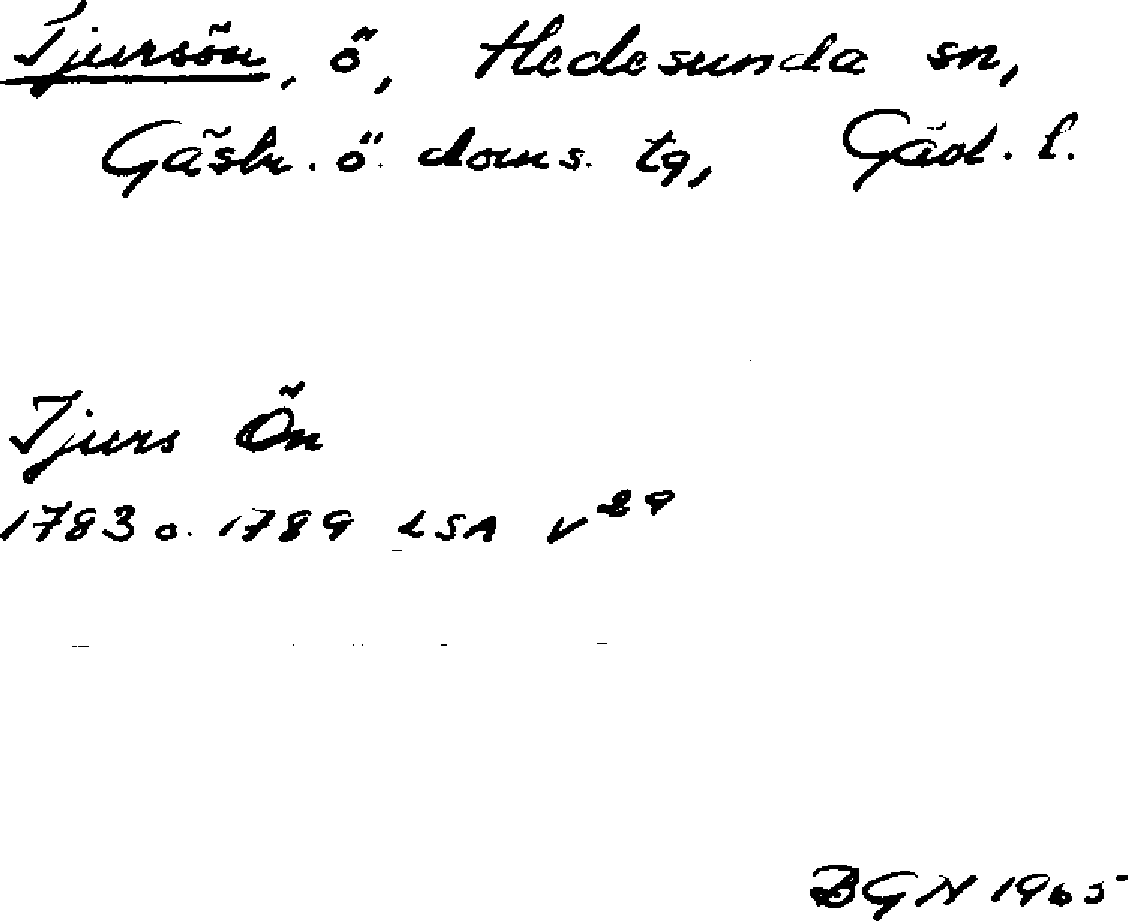 Tjursön, ö, Hedesunda sn,
Gästr. ö. doms. tg, Gävl. l.
Tjurs Ön
1783 o. 1789 LSA V 29
BGN 1965